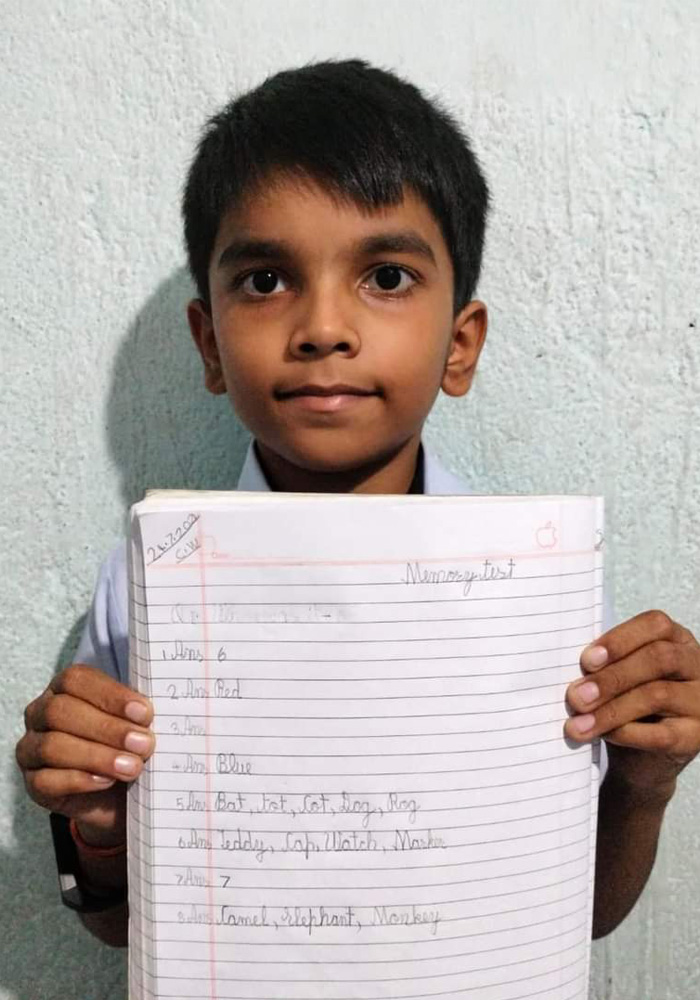 C.W
Memory test
1 Ans 6
2 Ans Red
3 Ans
4 Ans Blue
5 Ans Bat, tot, Cot, Dog, Rog
6 Ans Teddy, Cap, Watch, Marker
7 Ans 7
8 Ans Camel, Elephant, Monkey